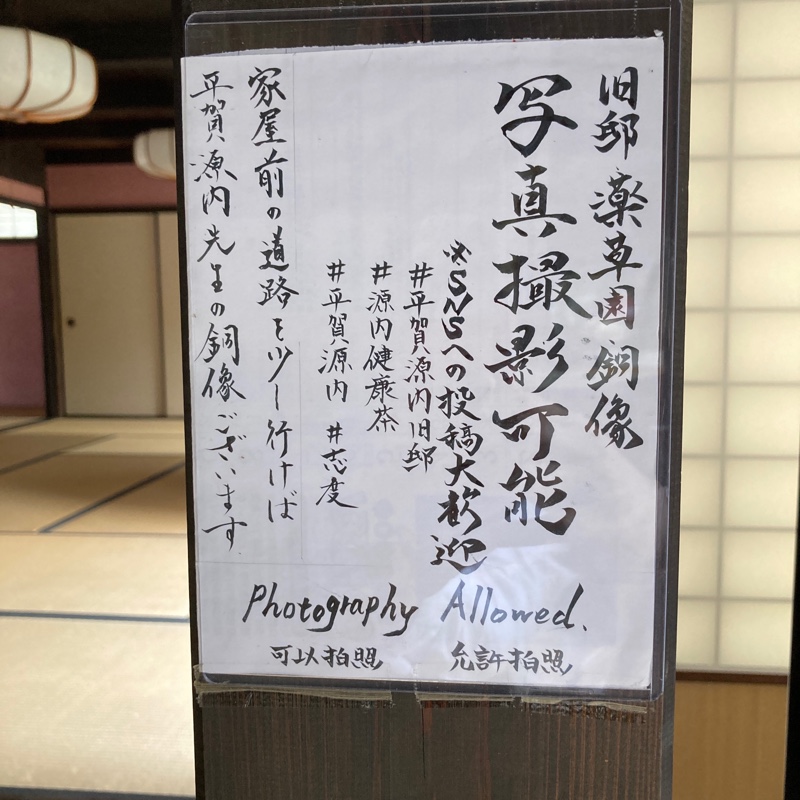 旧邸 薬草園 銅像
写真撮影可能
※SNSへの投稿大歓迎
#平賀源内旧邸
#源内健康茶
#平賀源内 #志度
家屋前の道路を少し行けば
平賀源内先生の銅像ございます
Photography Allowed.
可以拍照 允許拍照